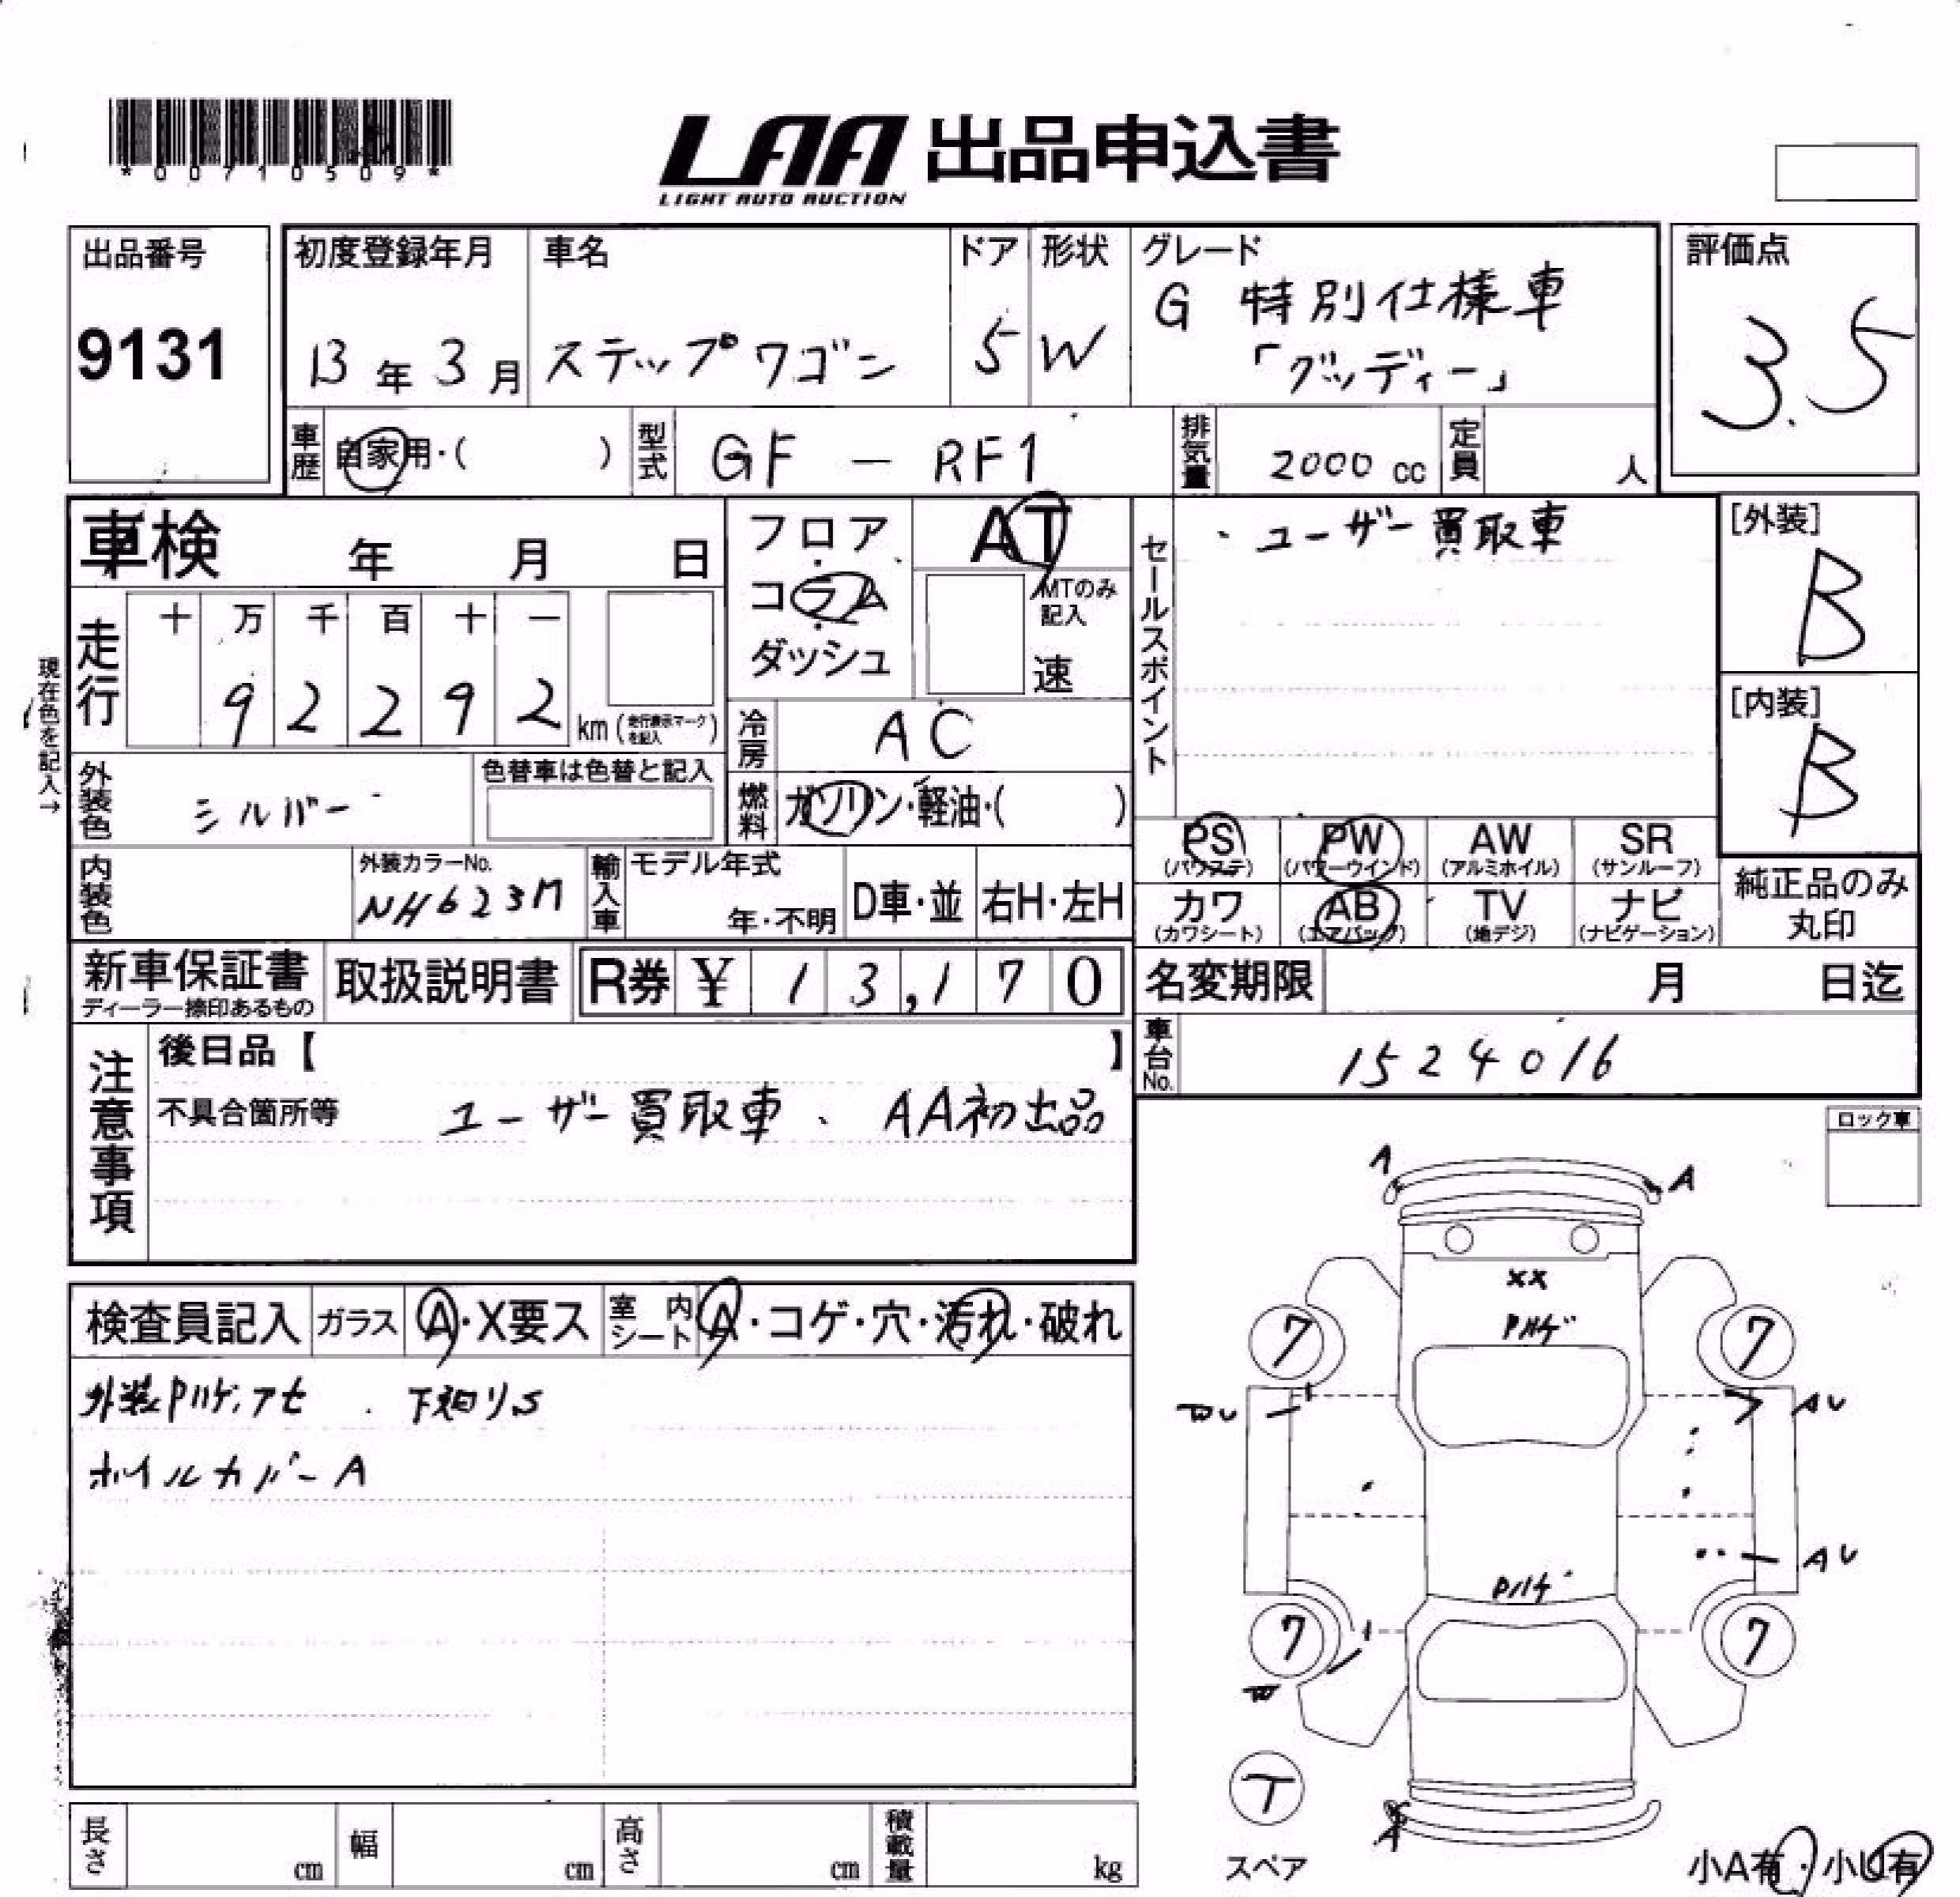 *00710509*
LAA 出品申込書
LIGHT AUTO AUCTION
出品番号
9131
初度登録年月
13年3月
車名
ステップワゴン
ドア
5
形状
W
グレード
G 特別仕様車
「グッディー」
評価点
3.5
車歴
自家用・( )
型式
GF - RF1
排気量
2000cc
定員
人
車検 年 月 日
フロア
・
コラム
・
ダッシュ
AT
MTのみ
記入
速
セールスポイント
・ユーザー買取車
[外装]
B
[内装]
B
現在色を記入→
走行
十 万 千 百 十 一
9 2 2 9 2
km(走行表示マークを記入)
冷房
AC
外装色
シルバー
色替車は色替と記入
燃料
ガソリン・軽油・( )
内装色
外装カラーNo.
NH623M
輸入車
モデル年式
年・不明
D車・並
右H・左H
PS
(パワステ)
PW
(パワーウインド)
AW
(アルミホイル)
SR
(サンルーフ)
カワ
(カワシート)
AB
(エアバッグ)
TV
(地デジ)
ナビ
(ナビゲーション)
純正品のみ
丸印
新車保証書
ディーラー捺印あるもの
取扱説明書
R券 ¥ 13,170
名変期限 月 日迄
車台No.
1524016
注意事項
後日品【 】
不具合箇所等 ユーザー買取車、AA初出品
ロック車
検査員記入
ガラス
A・X要ス
室内シート
A・コゲ・穴・汚れ・破れ
外装Pハゲ,アセ . 下廻りS
ホイルカバーA
A
A
XX
Pハゲ
7
7
AU
AU
Pハゲ
7
7
T
スペア
A
小A有・小U有
長さ cm
幅 cm
高さ cm
積載量 kg